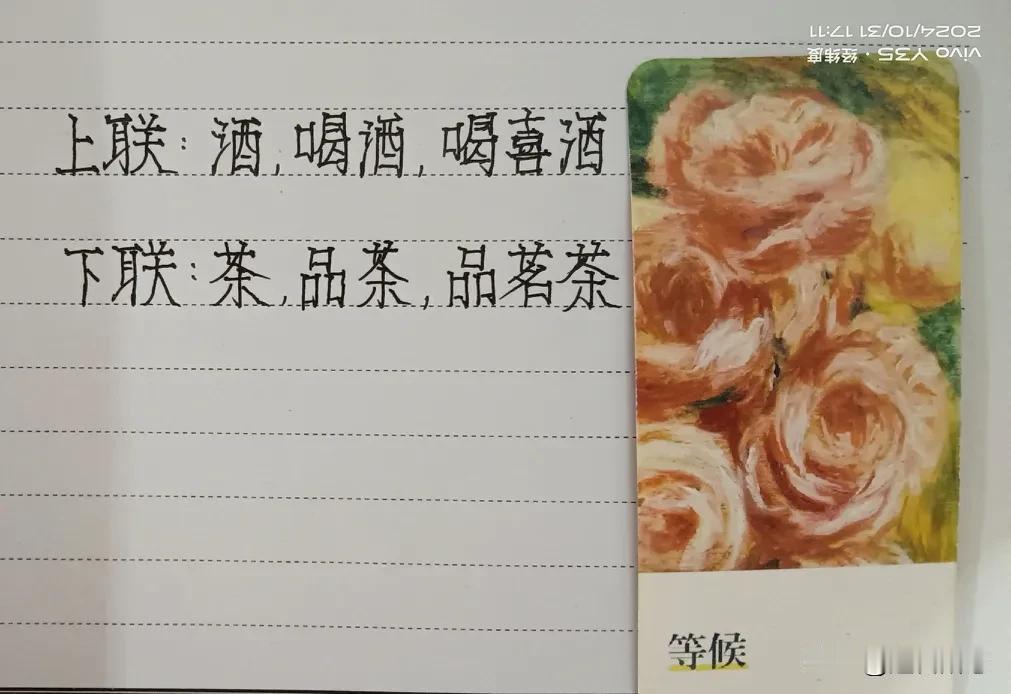 上联：酒，喝酒，喝喜酒
下联：茶，品茶，品茗茶
等候
vivo Y35 · 经纬度
2024/10/31 17:11